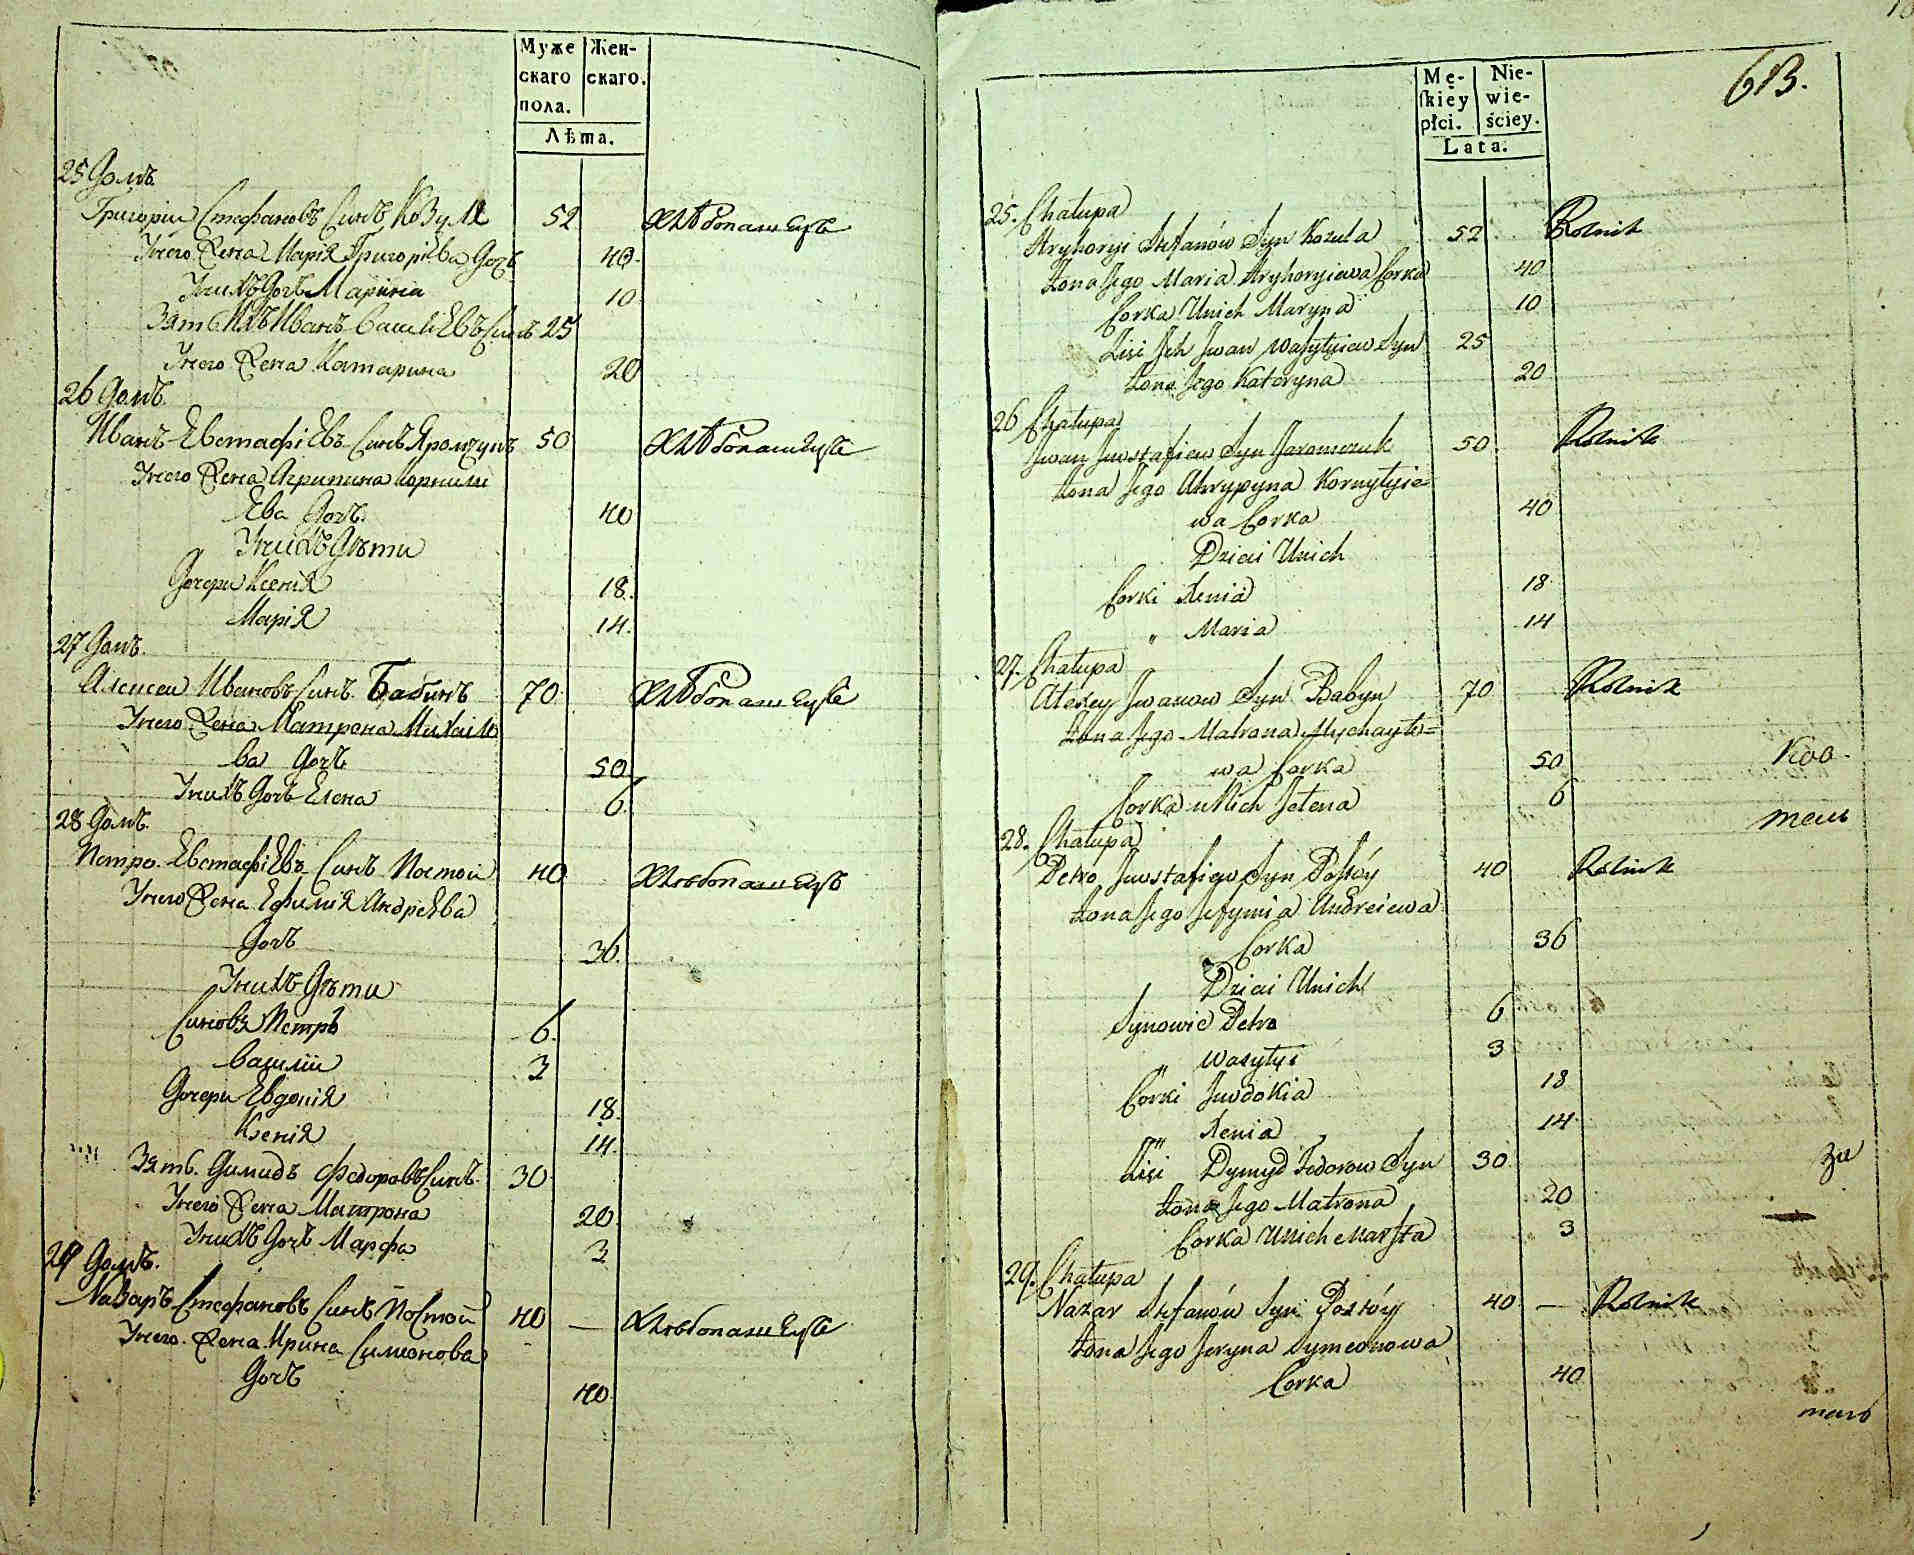 Муже
скаго
пола.
Жен-
скаго.
Лѣта.
25 Домъ.
Григории Стефановъ Синъ Козула 52 Хлѣбопашецъ
Унего Жена Марія Григоріева Дочъ 40.
Унихъ Дочъ Марина 10
Зять Ихъ Иванъ Василіевъ Синъ 25
Унего Жена Катарина 20
26 Домъ.
Иванъ Евстафіевъ Синъ Яромчукъ 50 Хлѣбопашецъ
Унего Жена Агрипина Корнили
Ева Дочъ. 40
Унихъ Дѣти
Дочери Ксенія 18.
Марія 14.
27 Домъ.
Алексеи Ивановъ Синъ Бабинъ 70 Хлѣбопашецъ
Унего Жена Матрона Михаило
ва Дочъ 50
Унихъ Дочъ Елена 6.
28 Домъ.
Петро Евстафіевъ Синъ Постои 40 Хлѣбопашецъ
Унего Жена Ефимія Андреева
Дочъ 36.
Унихъ Дѣти
Синовя Петръ 6.
Василіи 3
Дочери Евдокія 18.
Ксенія 14.
Зять. Димидъ Федоровъ Синъ. 30
Унего Жена Матрона 20.
Унихъ Дочъ Марфа 3
29 Домъ.
Назаръ Стефановъ Синъ Постой 40 — Хлѣбопашецъ
Унего. Жена Ирина Симионова
Дочъ 40
613.
Mę-
ſkiéy
płci.
Nie-
wie-
ściey.
Lata.
25. Chałupa
Hryhoryi Stefanów Syn Kozuła 52 Rolnik
Żona Jego Maria Hryhoryiewa Corka 40
Corka Unich Maryna 10
Zięć Ich Iwan Wasylyiew Syn 25
Żona Jego Kateryna 20
26 Chałupa
Iwan Iwstafiew Syn Jaromczuk 50 Rolnik
Żona Jego Ahrypyna Kornyłyie=
wa Corka 40
Dzieci Unich
Corki Xenia 18
" Maria 14
27. Chałupa
Alexey Iwanow Syn Babyn 70 Rolnik
Żona Jego Matrona Mychayło=
wa Corka 50
Corka u Nich Jelena 6
28. Chałupa
Petro Iwstafiew Syn Postóy 40 Rolnik
Żona Jego Jefymia Andreiewa
Corka 36
Dzieci Unich
Synowie Petro 6
" Wasyłyi 3
Corki Iwdokia 18
" Xenia 14
Zięć Dymyd Fedorow Syn 30
Żona Jego Matrona 20
Corka Unich Marfta 3
29. Chałupa
Nazar Stefanów Syn Postóy 40 — Rolnik
Żona Jego Jeryna Symeonowa
Corka 40